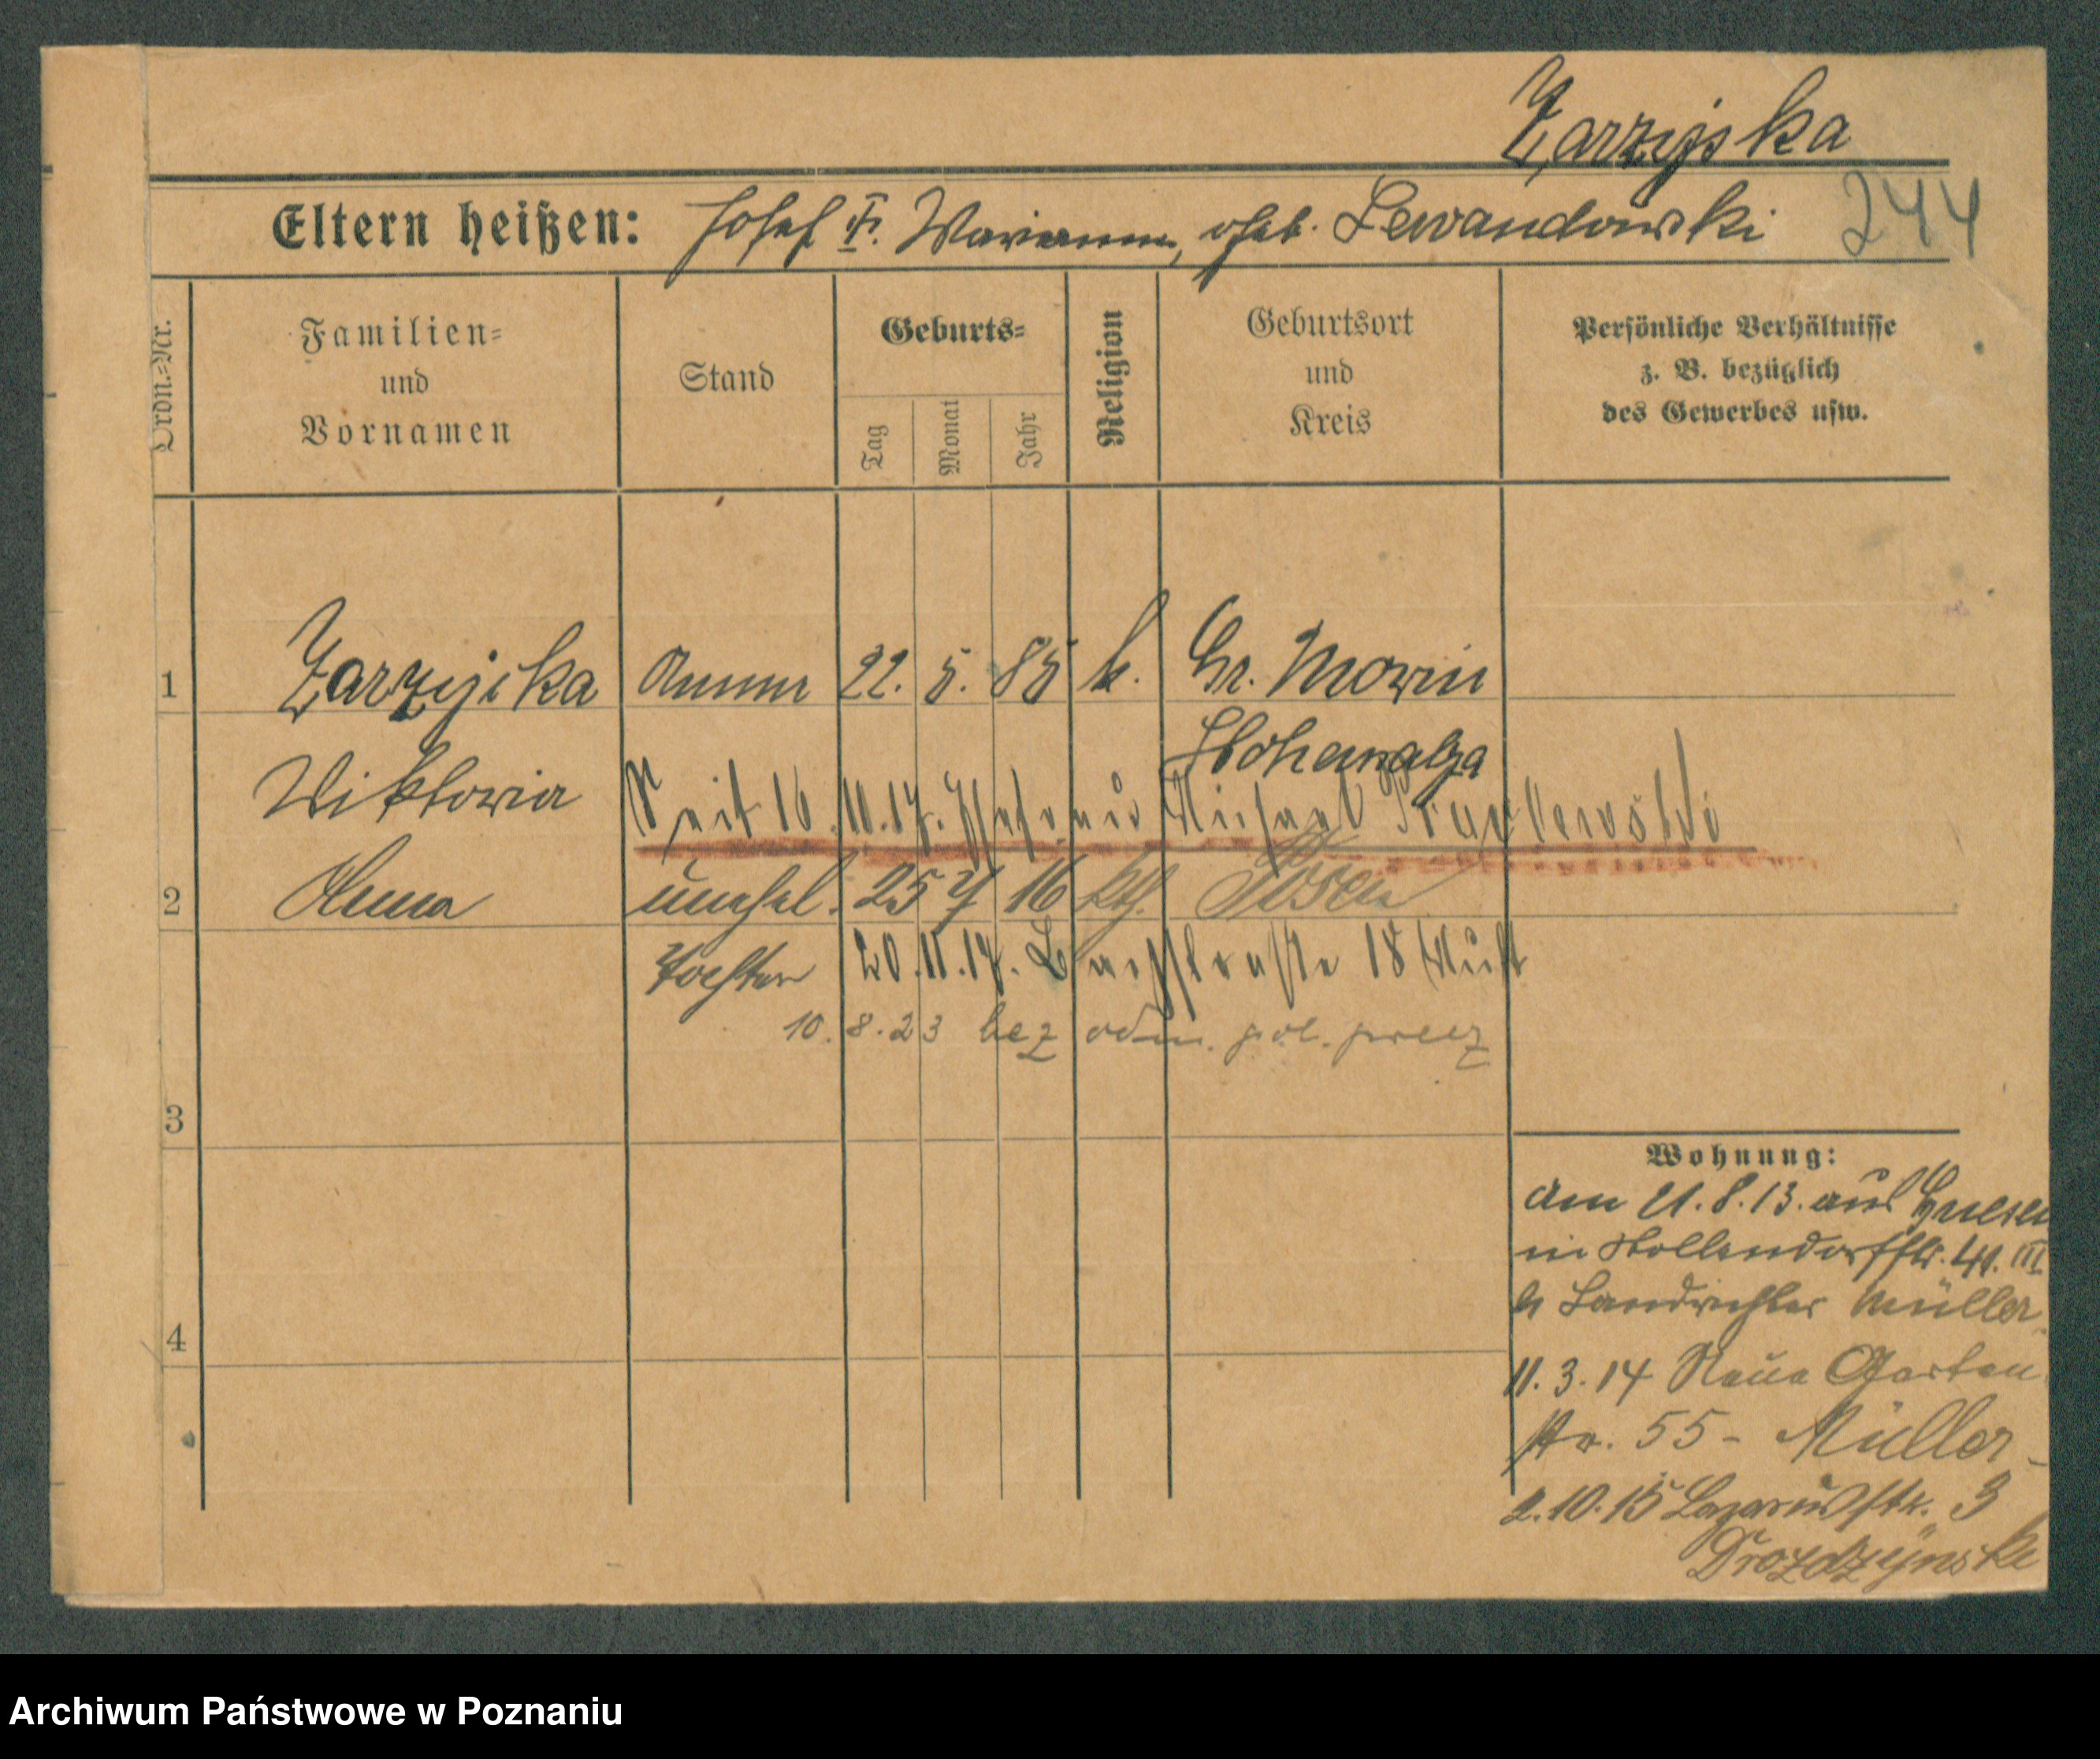 Zarzyjska
Eltern heißen: Josef u. Marianna, geb. Lewandowski 244
Ordn.=Nr.
Familien=
und
Vornamen
Stand
Geburts=
Tag
Monat
Jahr
Religion
Geburtsort
und
Kreis
Persönliche Verhältnisse
z. B. bezüglich
des Gewerbes usw.
1 Zarzyjska Amme 22. 5. 85 k. Gr. Morin
Hohensalza
Wiktoria
Seit 16.11.17. Ehefrau Michael
2 Anna unehel. 25 7 16 kth. Posen
Tochter 20.11.17. Bachstraße 18 Mült
10.8.23 bez odm. pol. precz
3
4
Wohnung:
Am 21.8.13. aus Gnesen
in Hollendorffstr. 41. III
b Landrichter Müller.
11.3.14 Neue Garten
str. 55 - Müller -
2.10.15 Lazarusstr. 3
Drozdzynska
Archiwum Państwowe w Poznaniu